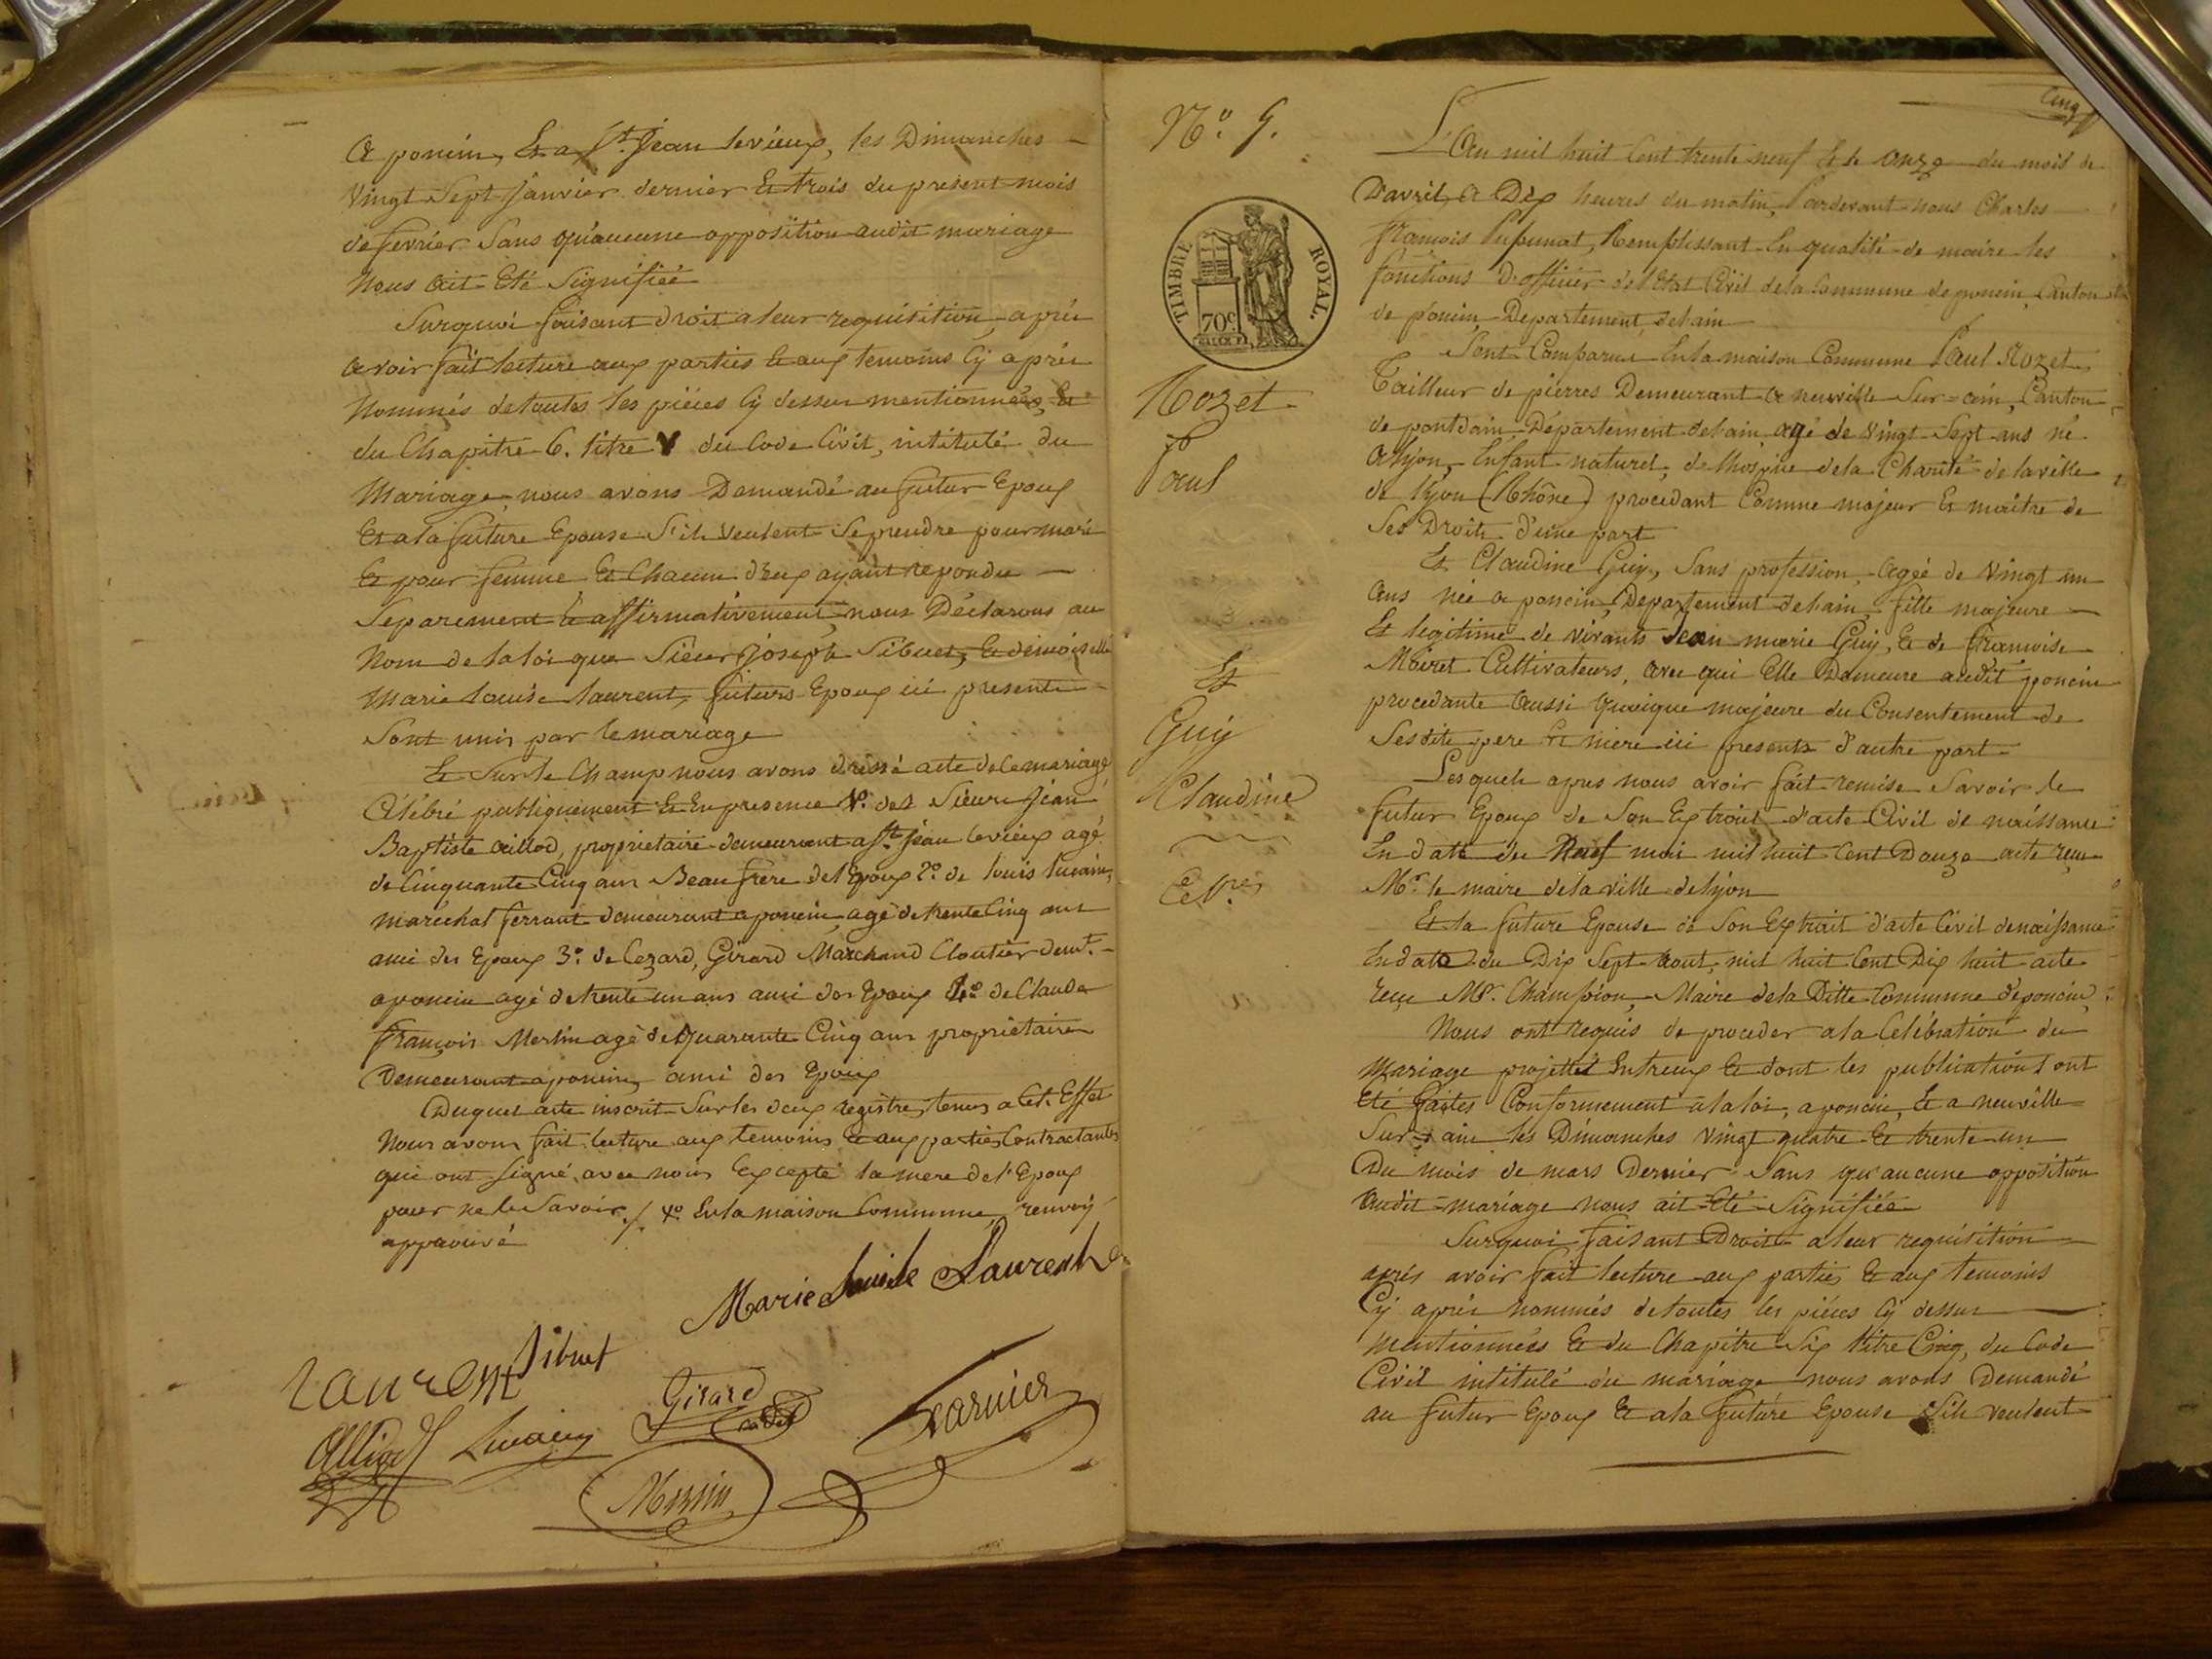 a poncin, Et a St. Jean levieux, les Dimanches
Vingt Sept Janvier dernier Et trois du present mois
de fevrier Sans qu'aucune opposition audit mariage
Nous ait Eté Signifiée
Surquoi faisant droit aleur requisition, aprés
avoir fait lecture aux parties Et aux temoins Cÿ aprés
Nommés detoutes les piéces Cÿ dessus mentionnées, Et
du Chapitre 6. titre V du Code Civil, intitulé du
Mariage, nous avons Demandé au futur Epoux
Et ala future Epouse S'ils Veulent Seprendre pour mari
Et pour femme Et Chacun d'eux ayant repondu
Separement Et affirmativement, nous Déclarons au
Nom de laloi que Sieur Joseph Sibuet, Et demoiselle
Marie Louise Laurent, futurs Epoux ici presents
Sont unis par lemariage
Et Surle Champ nous avons dressé acte de Cemariage
Célébré publiquement Et Enpresence 1º. des Sieurs Jean
Baptiste Aillod, proprietaire demeurant a St. Jean levieux agé
de Cinquante Cinq ans Beau frere de l'Epoux 2º. de Louis Lucain,
maréchal ferrant demeurant aponcin, agé de trente Cinq ans
ami des Epoux 3º. de Cezard, Girard Marchand Cloutier demt.
aponcin agé de trente un ans ami des Epoux 4º. de Claude
François Merlin agé de quarante Cinq ans propriétaire
Demeurant aponcin, ami des Epoux
Duquel acte inscrit Surles deux registres tenus a Cet Effet
Nous avons fait lecture aux temoins Et aux parties Contractantes
qui ont Signé avec nous Excepté la mere de l'Epoux
pour ne le Savoir ./. 4º. En la maison Commune, renvoÿ
approuvé
Marie Louise Laurent
Laurent Sibuet
Girard
cadet
Alliod Lucain
Merlin
Cinq
Nº. 5.
TIMBRE ROYAL.
70c
Nozet
Paul
Et
Guÿ
Claudine
L'An mil huit Cent trente neuf Et le onze du mois de
D'avril, a Dix heures du matin, Pardevant nous Charles
françois, Remplissant En qualité de maire les
fonctions D'officier de l'Etat Civil dela Commune de poncin, Canton
de poncin, Departement delain
Sont Comparus En la maison Commune Paul Nozet,
Tailleur de pierres Demeurant a neuville Sur=ain, Canton
de pontdain, Département delain, agé de Vingt Sept ans né
a lyon, Enfant naturel, de lhospice dela Charité de la ville
de lÿon (Rhône) procedant Comme majeur Et maitre de
Ses Droits d'une part
Et Claudine Guÿ, Sans profession, agée de Vingt un
ans née a poncin, Département delain, fille majeure
Et legitime de vivants Jean marie Guÿ, Et de françoise
Moiret Cultivateurs, avec qui Elle Demeure audit poncin
procedante aussi quoique majeure du Consentement de
Sesdits pere Et mere ici presents d'autre part
Lesquels apres nous avoir fait remise Savoir le
futur Epoux de Son Extrait d'acte Civil de naissance
En date du Neuf mai mil huit Cent Douze acte reçu
Mr. le maire dela ville de lyon
Et la future Epouse de Son Extrait d'acte Civil denaissance
Endate du Dix Sept aout, mil huit Cent Dix huit acte
reçu Mr. Champion, Maire dela Ditte Commune deponcin,
Nous ont requis de proceder ala Célébration du
Mariage projetté Entreux Et dont les publications ont
Eté faites Conformement alaloi, aponcin, Et a neuville
Sur=ain les Dimanches Vingt quatre Et trente un
Du mois de mars Dernier Sans qu'aucune opposition
audit mariage Nous ait Eté Signifiée
Surquoi faisant Droit aleur requisition
aprés avoir fait lecture aux parties Et aux temoins
Cÿ aprés nommés detoutes les piéces Cÿ dessus
Mentionnées Et du Chapitre Six titre Cinq, du Code
Civil intitulé du mariage nous avons Demandé
au futur Epoux Et ala future Epouse S'ils veulent